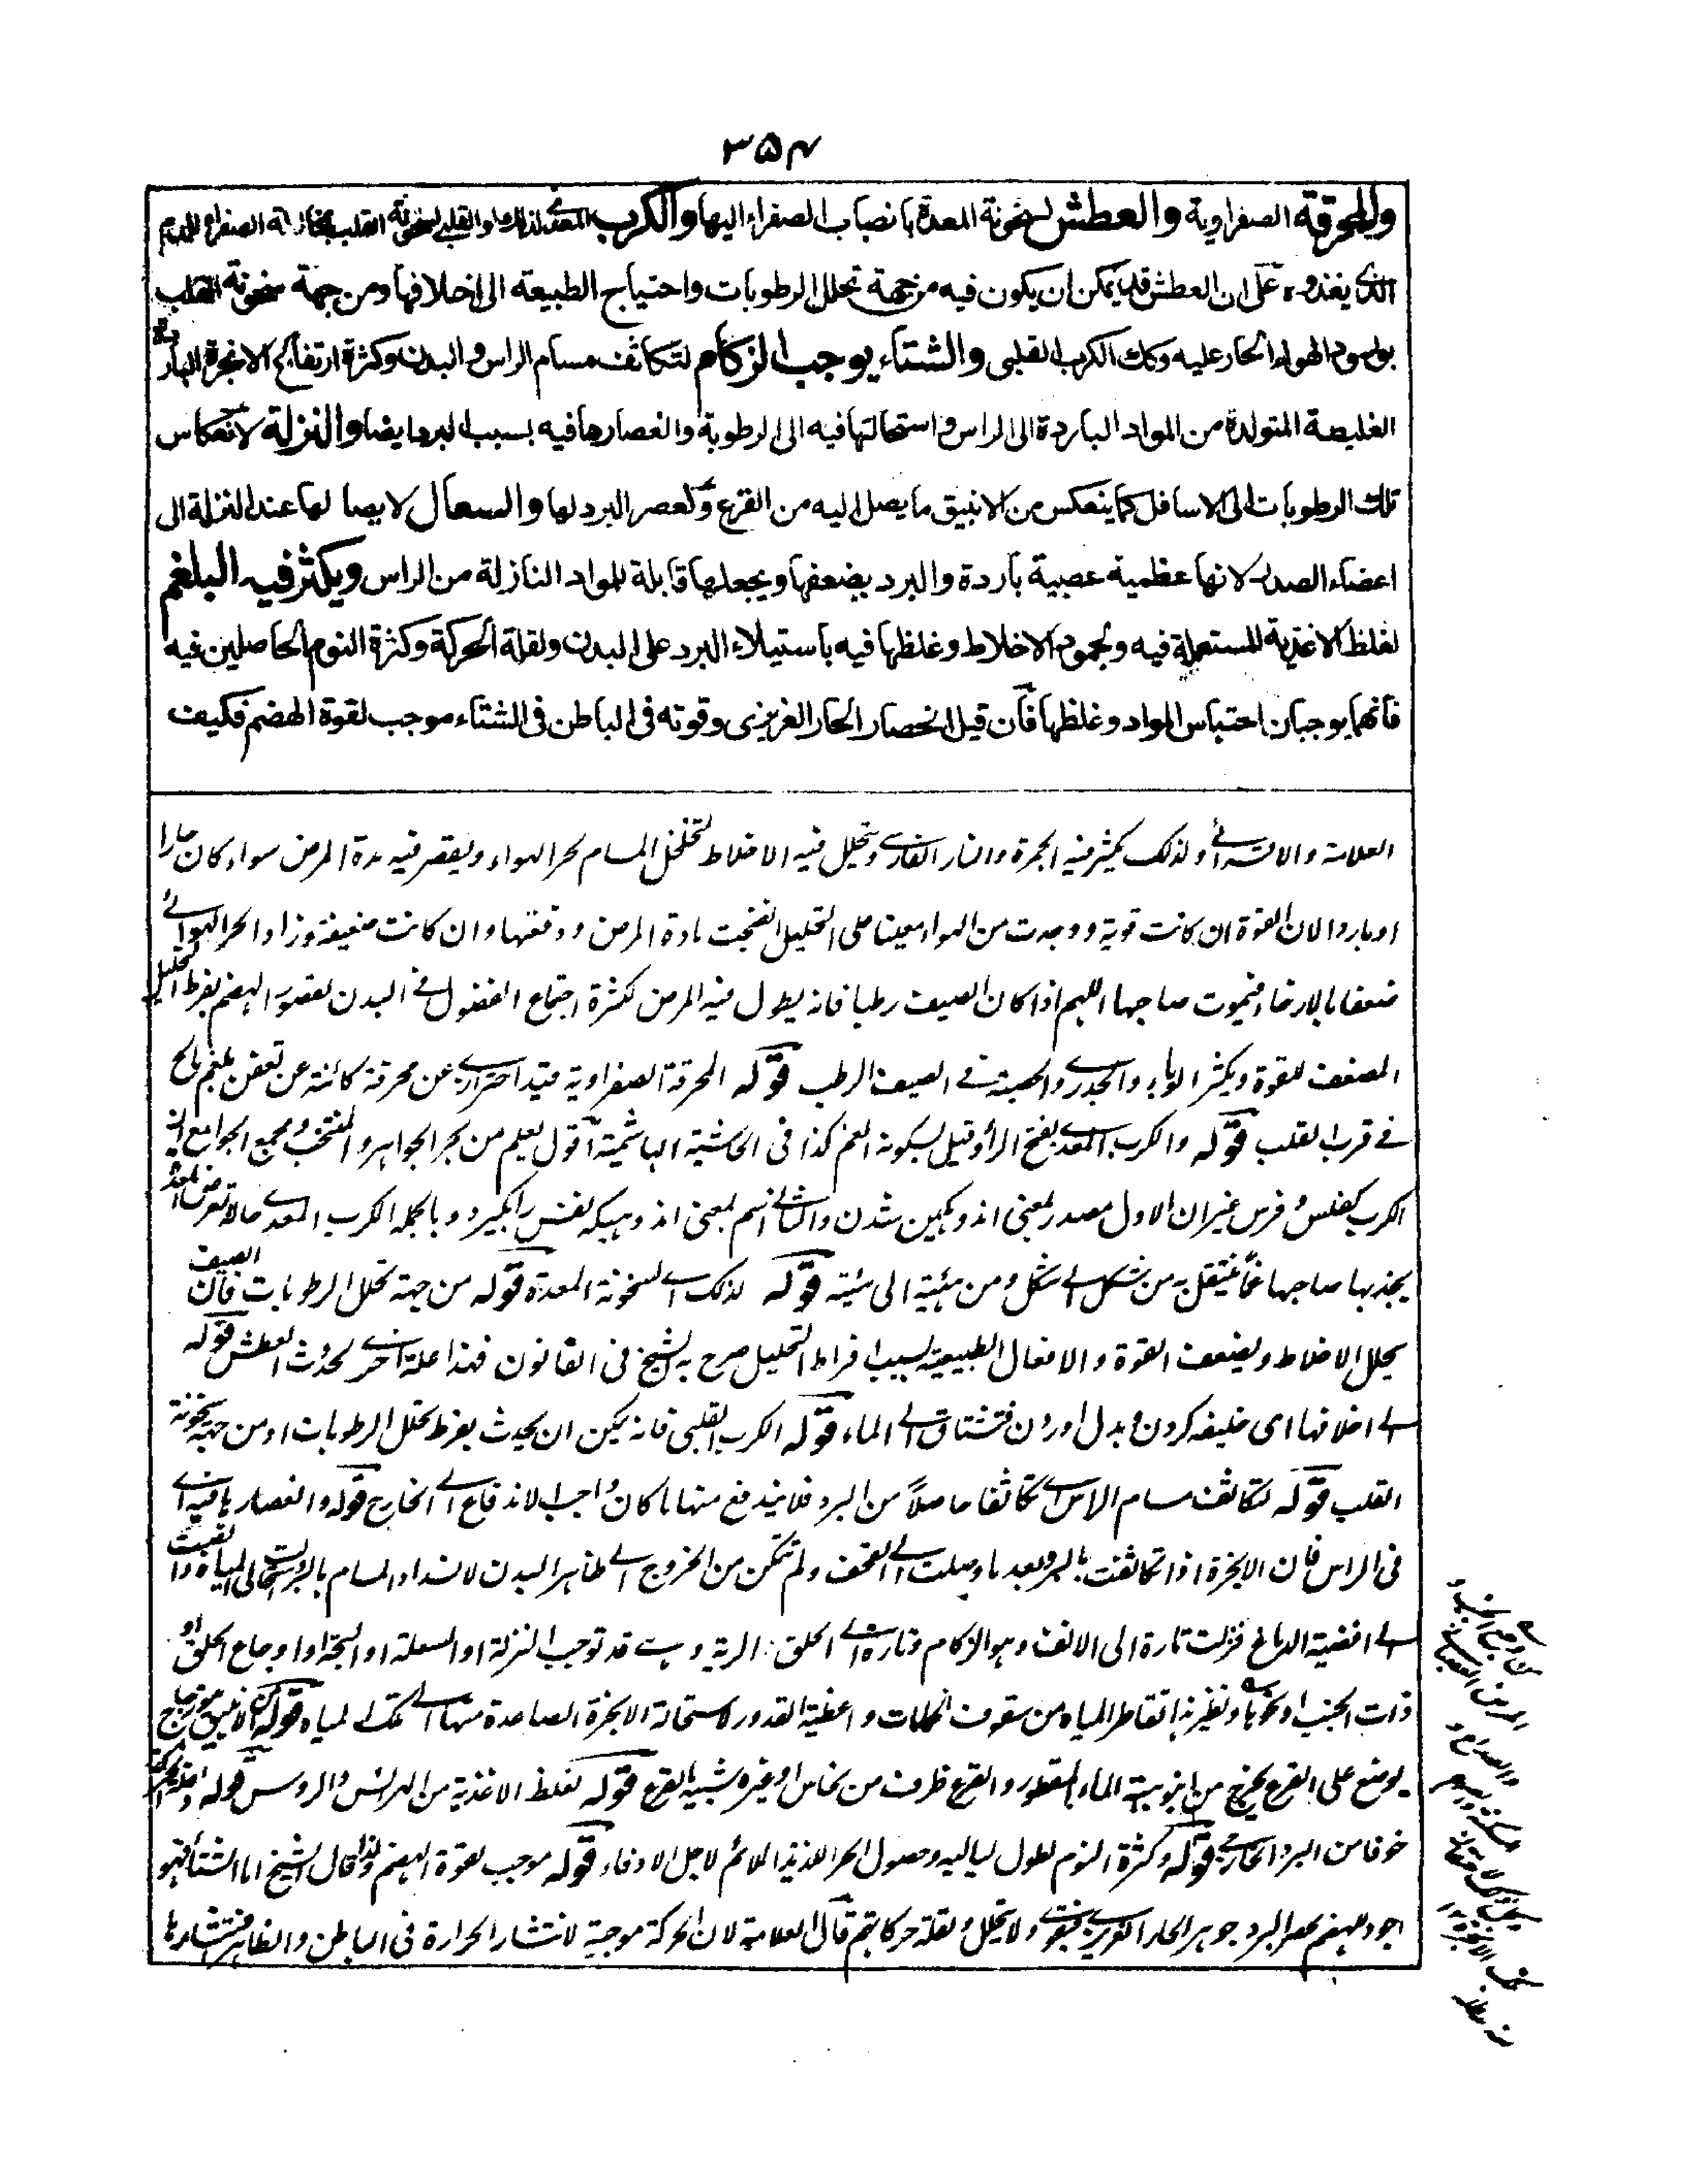 ۳۵۴
والمحرقة الصفراوية والعطش لسخونة المعدة بانصباب الصفراء اليها والكرب المعدى لذلك والقلبى لسخونة القلب بمخالطة الصفراء للدم
الذى يغذوه على ان العطش قد يمكن ان يكون فيه من جهة تحلل الرطوبات واحتياج الطبيعة الى اخلافها ومن جهة سخونة القلب
بورود الهواء الحار عليه وكك الكرب القلبى والشتاء يوجب الزكام لتكاثف مسام الراس والبدن وكثرة ارتفاع الابخرة الباردة
الغليظة المتولدة من المواد الباردة الى الراس واستحالتها فيه الى الرطوبة وانعصارها فيه بسبب البرد ايضا والنزلة لانعكاس
تلك الرطوبات الى الاسافل كما ينعكس من الانبيق ما يصل اليه من القرع ولعصر البرد لها والسعال لايصالها عند النزلة الى
اعضاء الصدر لانها عظمية عصبية باردة والبرد يضعفها ويجعلها قابلة للمواد النازلة من الراس ويكثر فيه البلغم
لغلظ الاغذية المستعملة فيه ولجمود الاخلاط وغلظها فيه باستيلاء البرد على البدن ولقلة الحركة وكثرة النوم الحاصلين فيه
فانهما يوجبان احتباس المواد وغلظها فان قيل انحصار الحار الغريزى وقوته فى الباطن فى الشتاء موجب لقوة الهضم فكيف
العلامة والاقسرائى ولذلك يكثر فيه الجمرة والنار الفارسى ويتحلل فيه الاخلاط لتخلخل المسام لحر الهواء ويقصر فيه مدة المرض سواء كان حارا
او باردا لان القوة ان كانت قوية ووجدت من الهواء معينا على التحليل انضجت مادة المرض ودفعتها وان كانت ضعيفة وزاد الحر الهوائى
ضعفا بالارخاء فيموت صاحبها اللهم اذا كان الصيف رطبا فانه يطول فيه المرض لكثرة اجتماع الفضول فى البدن لقصور الهضم بفرط التحليل
المضعف للقوة ويكثر الوباء والجدرى والحصبة فى الصيف الرطب قوله المحرقة الصفراوية قيد احترازى عن محرقة كائنة عن تعفن بلغم مالح
فى قرب القلب قوله والكرب المعدى بفتح الراء وقيل بسكونه الغم كذا فى الحاشية الهاشمية اقول يعلم من بحر الجواهر والمنتخب ومجمع الجوامع ان
الكرب كفلس وفرس غير ان الاول مصدر بمعنى اندوهگين شدن والثانى اسم بمعنى اندوهيكه نفس را بگيرد وبالجملة الكرب المعدى حالة تعرض للمعدة
يجد بها صاحبها غما ينتقل به من شكل الى شكل ومن هيئة الى هيئة قوله لذلك اى لسخونة المعدة قوله من جهة تحلل الرطوبات فان الصيف
يحلل الاخلاط ويضعف القوة والافعال الطبيعية بسبب افراط التحليل صرح به الشيخ فى القانون فهذا علة اخرى لحدوث العطش قوله
الى اخلافها اى خليفه كردن وبدل اوردن فتشتاق الى الماء قوله الكرب القلبى فانه يمكن ان يحدث بفرط تحلل الرطوبات او من جهة سخونة
القلب قوله لتكاثف مسام الراس اى تكاثفا حاصلا من البرد فلا يندفع منها ما كان واجب الاندفاع الى الخارج قوله وانعصارها فيه اى
فى الراس فان الابخرة اذا تكاثفت بالبرد بعد ما وصلت الى القحف ولم تتمكن من الخروج الى ظاهر البدن لانسداد المسام بالبرد استحالت الى المياه وانصبت
الى افضية الدماغ فنزلت تارة الى الانف وهو الزكام وتارة الى الحلق والرية وهى قد توجب النزلة او السعلة او البحة او اوجاع الحلق او
ذات الجنب او نحوها ونظير هذا تقاطر المياه من سقوف الحمامات واغطية القدور لاستحالة الابخرة الصاعدة منها الى تلك المياه قوله من الانبيق هو زجاج
يوضع على القرع يخرج من انبوبته الماء المقطور والقرع ظرف من نحاس او غيره شبيه بالقرع قوله لغلظ الاغذية من الهرائس والروس قوله ولقلة الحركة
خوفا من البرد الخارجى قوله وكثرة النوم لطول لياليه وحصول الحر اللذيذ الملائم لاجل الادفاء قوله موجب لقوة الهضم ولذا قال الشيخ اما الشتاء فهو
اجود للهضم لحصر البرد جوهر الحار الغريزى فيقوى ولا يتحلل ولقلة حركاتهم قال العلامة لان الحركة موجبة لانتشار الحرارة فى الباطن والظاهر فتنتشارها